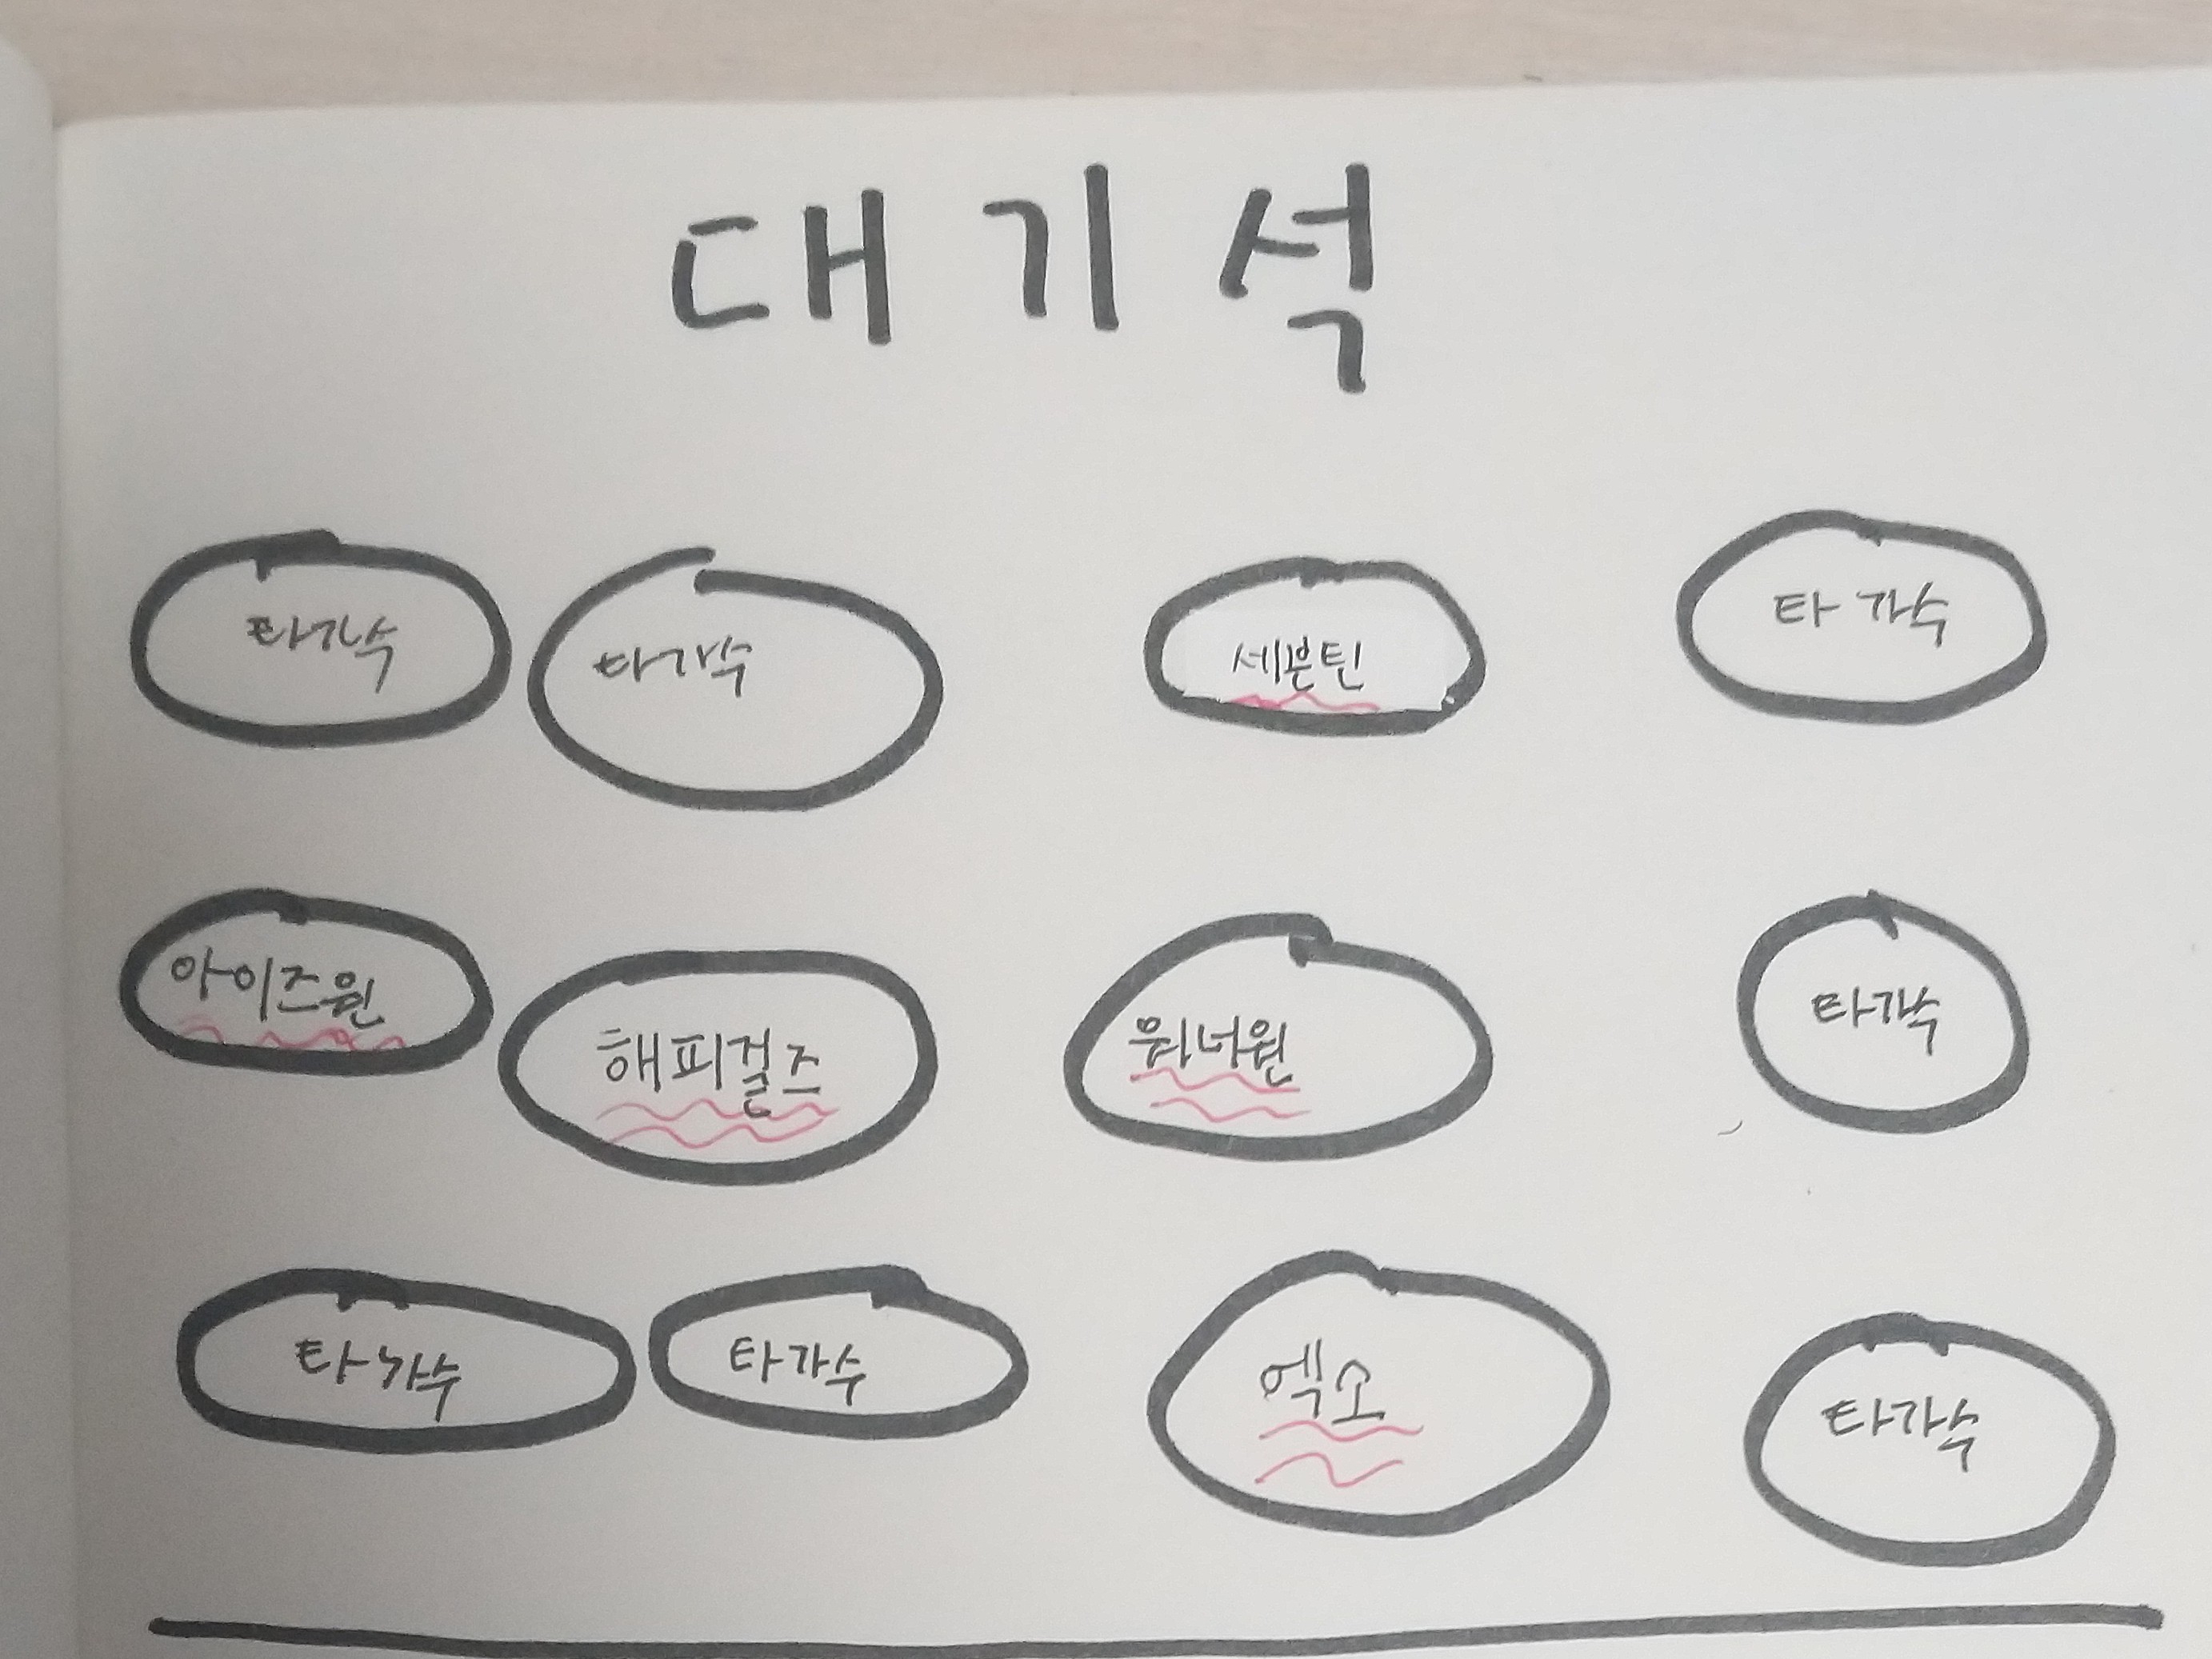 대기석
타가수 타가수 세븐틴 타 가수
아이즈원 해피걸즈 워너원 타가수
타 가수 타가수 엑소 타가수